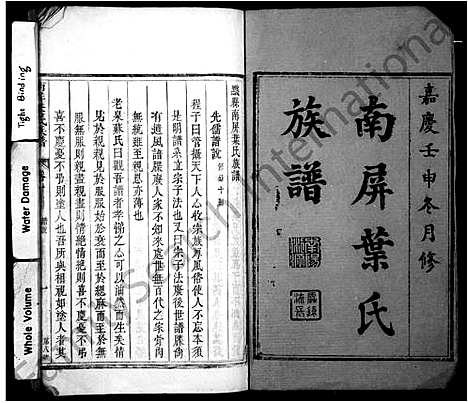 嘉慶壬申冬月修
南屏葉氏
族譜
黟縣南屏葉氏族譜
先儒譜説
程子曰管攝天下人心收宗族厚風俗使人不忘本須
是明譜系立宗子法又曰宗子法廢後世譜牒尚
有遺風譜牒廢人家不知來處無百代之家骨肉
無統雖至親恩亦薄也
老泉蘇氏曰觀吾譜者孝悌之心可以油然而生矣情
見於親親見於服服始於衰而至於緦麻而至於無
服無服則親盡親盡則情盡情盡則喜不慶憂不弔
喜不慶憂不弔則途人也吾所與相視如途人者其
Tight Binding
Water Damage
Whole Volume
FamilySearch International